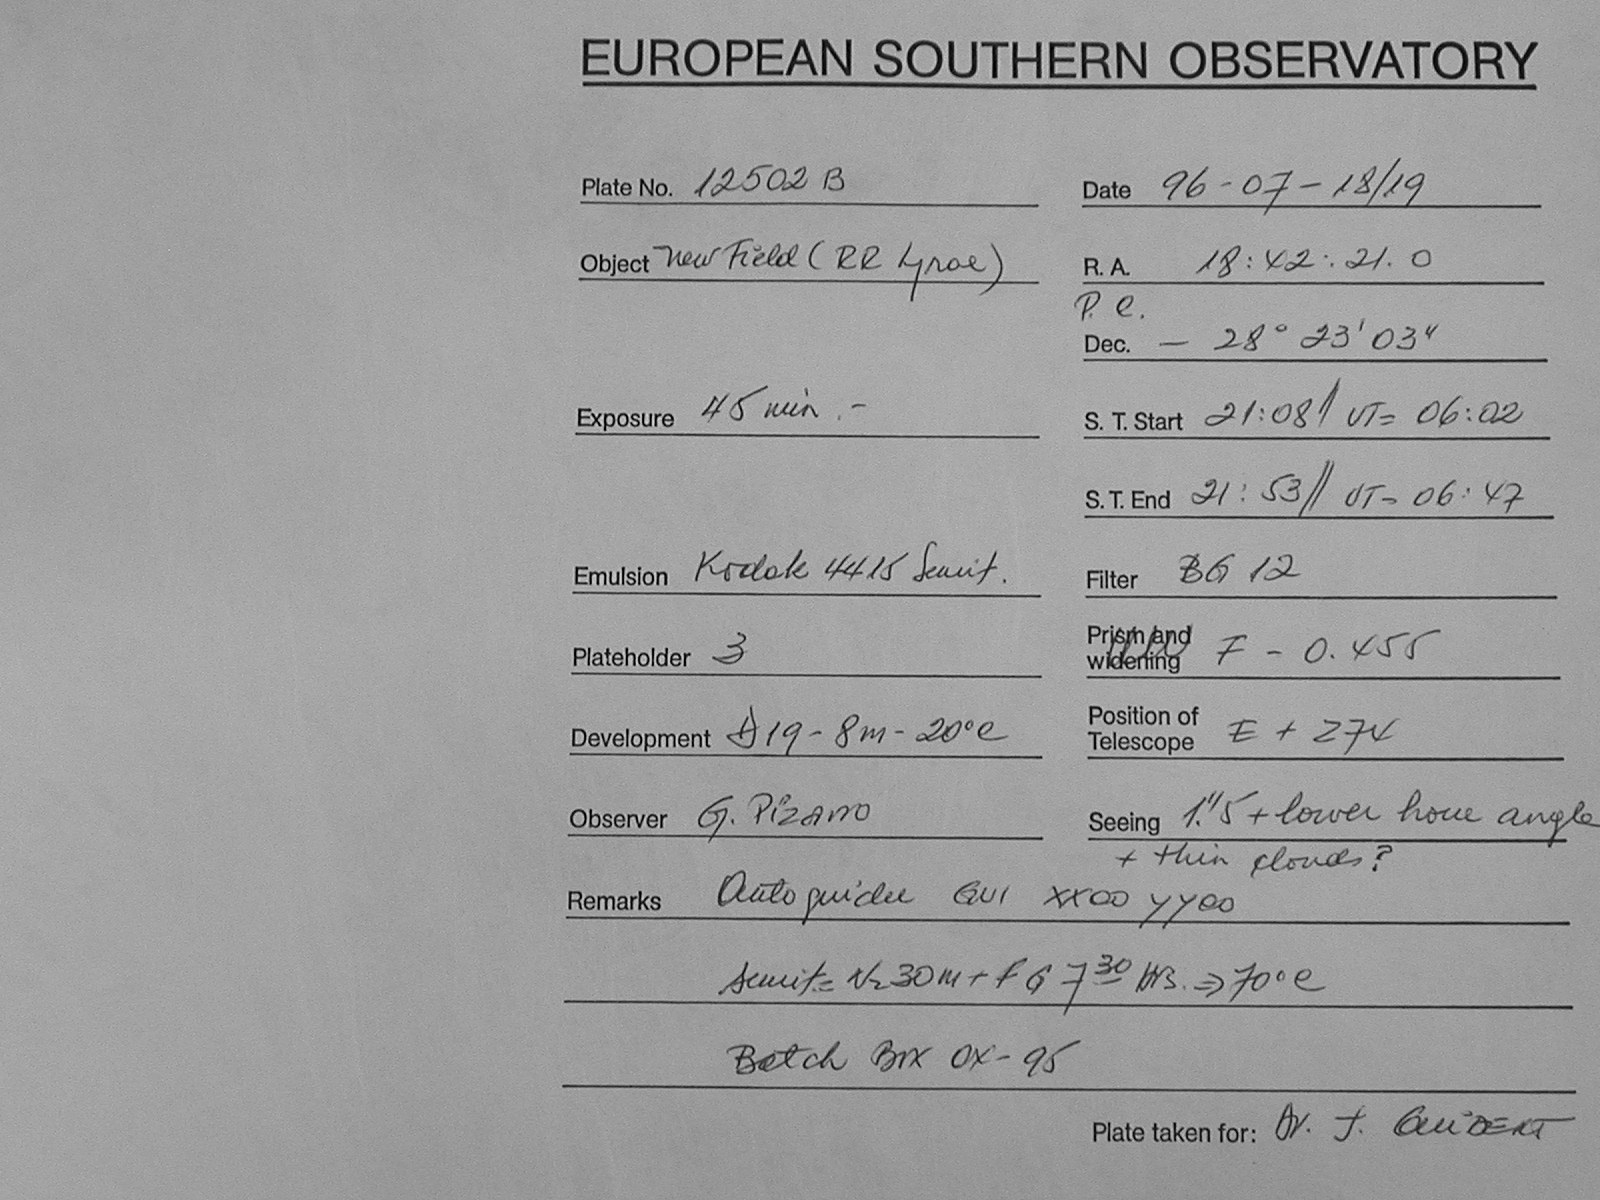 EUROPEAN SOUTHERN OBSERVATORY
Plate No. 12502 B
Date 96-07-18/19
Object New Field (RR Lyrae)
R. A. 18:42:21.0
P. C.
Dec. - 28° 23' 03"
Exposure 45 min.-
S. T. Start 21:08/ UT= 06:02
S. T. End 21:53// UT= 06:47
Emulsion Kodak 4415 Sensit.
Filter BG 12
Plateholder 3
Prism and widening F - 0.455
Development D19-8m-20°C
Position of Telescope E + 274
Observer G. Pizarro
Seeing 1."5 + lower hour angle
+ thin clouds?
Remarks Autoguider GUI XX00 YY00
Sensit= N2 30m + FG 7 30 Hrs. ⇒ 70°C
Batch Box OX-95
Plate taken for: Dr. J.